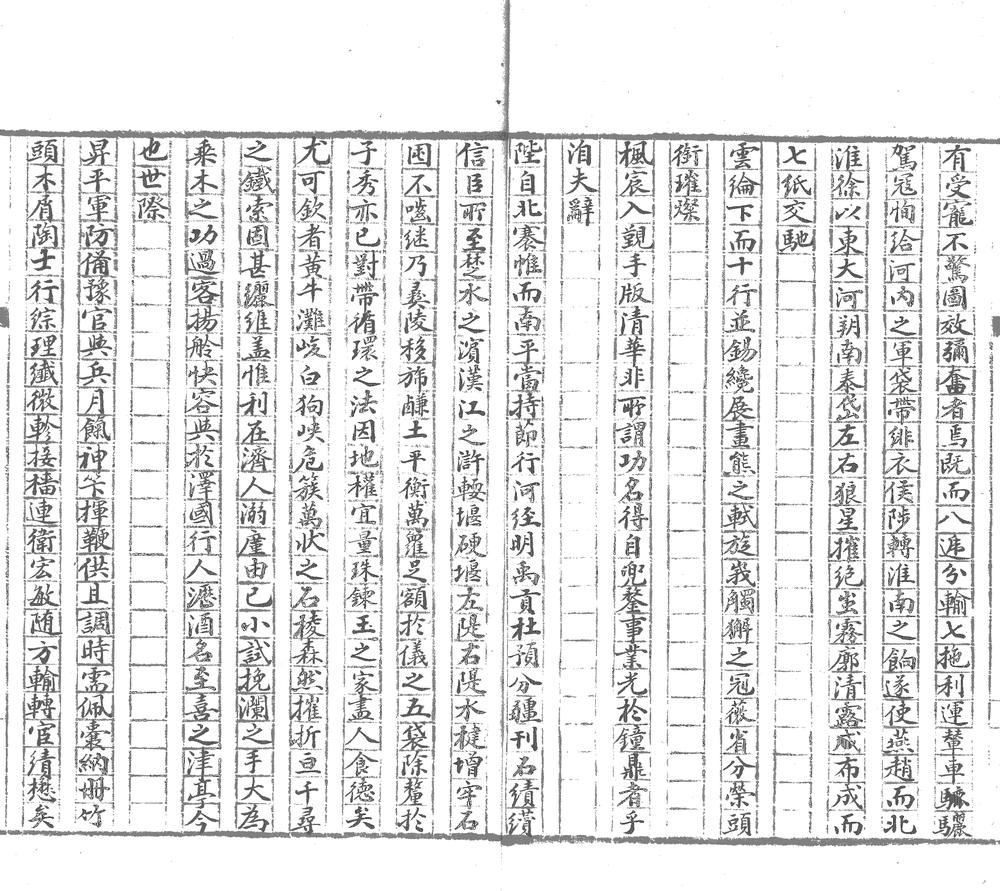 有受寵不驚圖效彌奮者焉既而八漘分輸七拖利運輦車驦驪
駕冦恂給河內之軍袋帶緋衣侯陟轉淮南之餉遂使燕趙而北
淮徐以東大河朔南泰岱左右狼星摧絶蚩霧廓清露布成而
七紙交馳
雲綸下而十行並錫纔展畫熊之軾旋峩觸獬之冠薇省分榮頭
銜璀璨
楓宸入覲手版清華非所謂功名得自兜鍪事業光於鐘鼎者乎
洎夫辭
陛自北褰帷而南平當持節行河經明禹貢杜預分疆刊名績續
信臣所至楚水之濱漢江之滸輭堰硬堰左隄右隄水揵增牢石
囷不嗞继乃彞陵移斾鹺土平衡萬羅足額於儀之五袋除釐於
子秀亦已對帶循環之法因地權宜量珠鍊玉之家盡人食德矣
尤可欽者黃牛灘峻白狗峽危簇萬狀之石稜森然摧折亘千尋
之鐵索固甚纚維盖惟利在濟人溺廑由己小試挽瀾之手大為
乘木之功過客揚舲快容與於澤國行人瀝酒名至喜之津亭今
也世際
昇平軍防備豫官與兵月餼神笇揮鞭供且調時需佩囊納册竹
頭木屑陶士行綜理纖微軫接檣連衛宏敏随方輸轉宦績懋矣